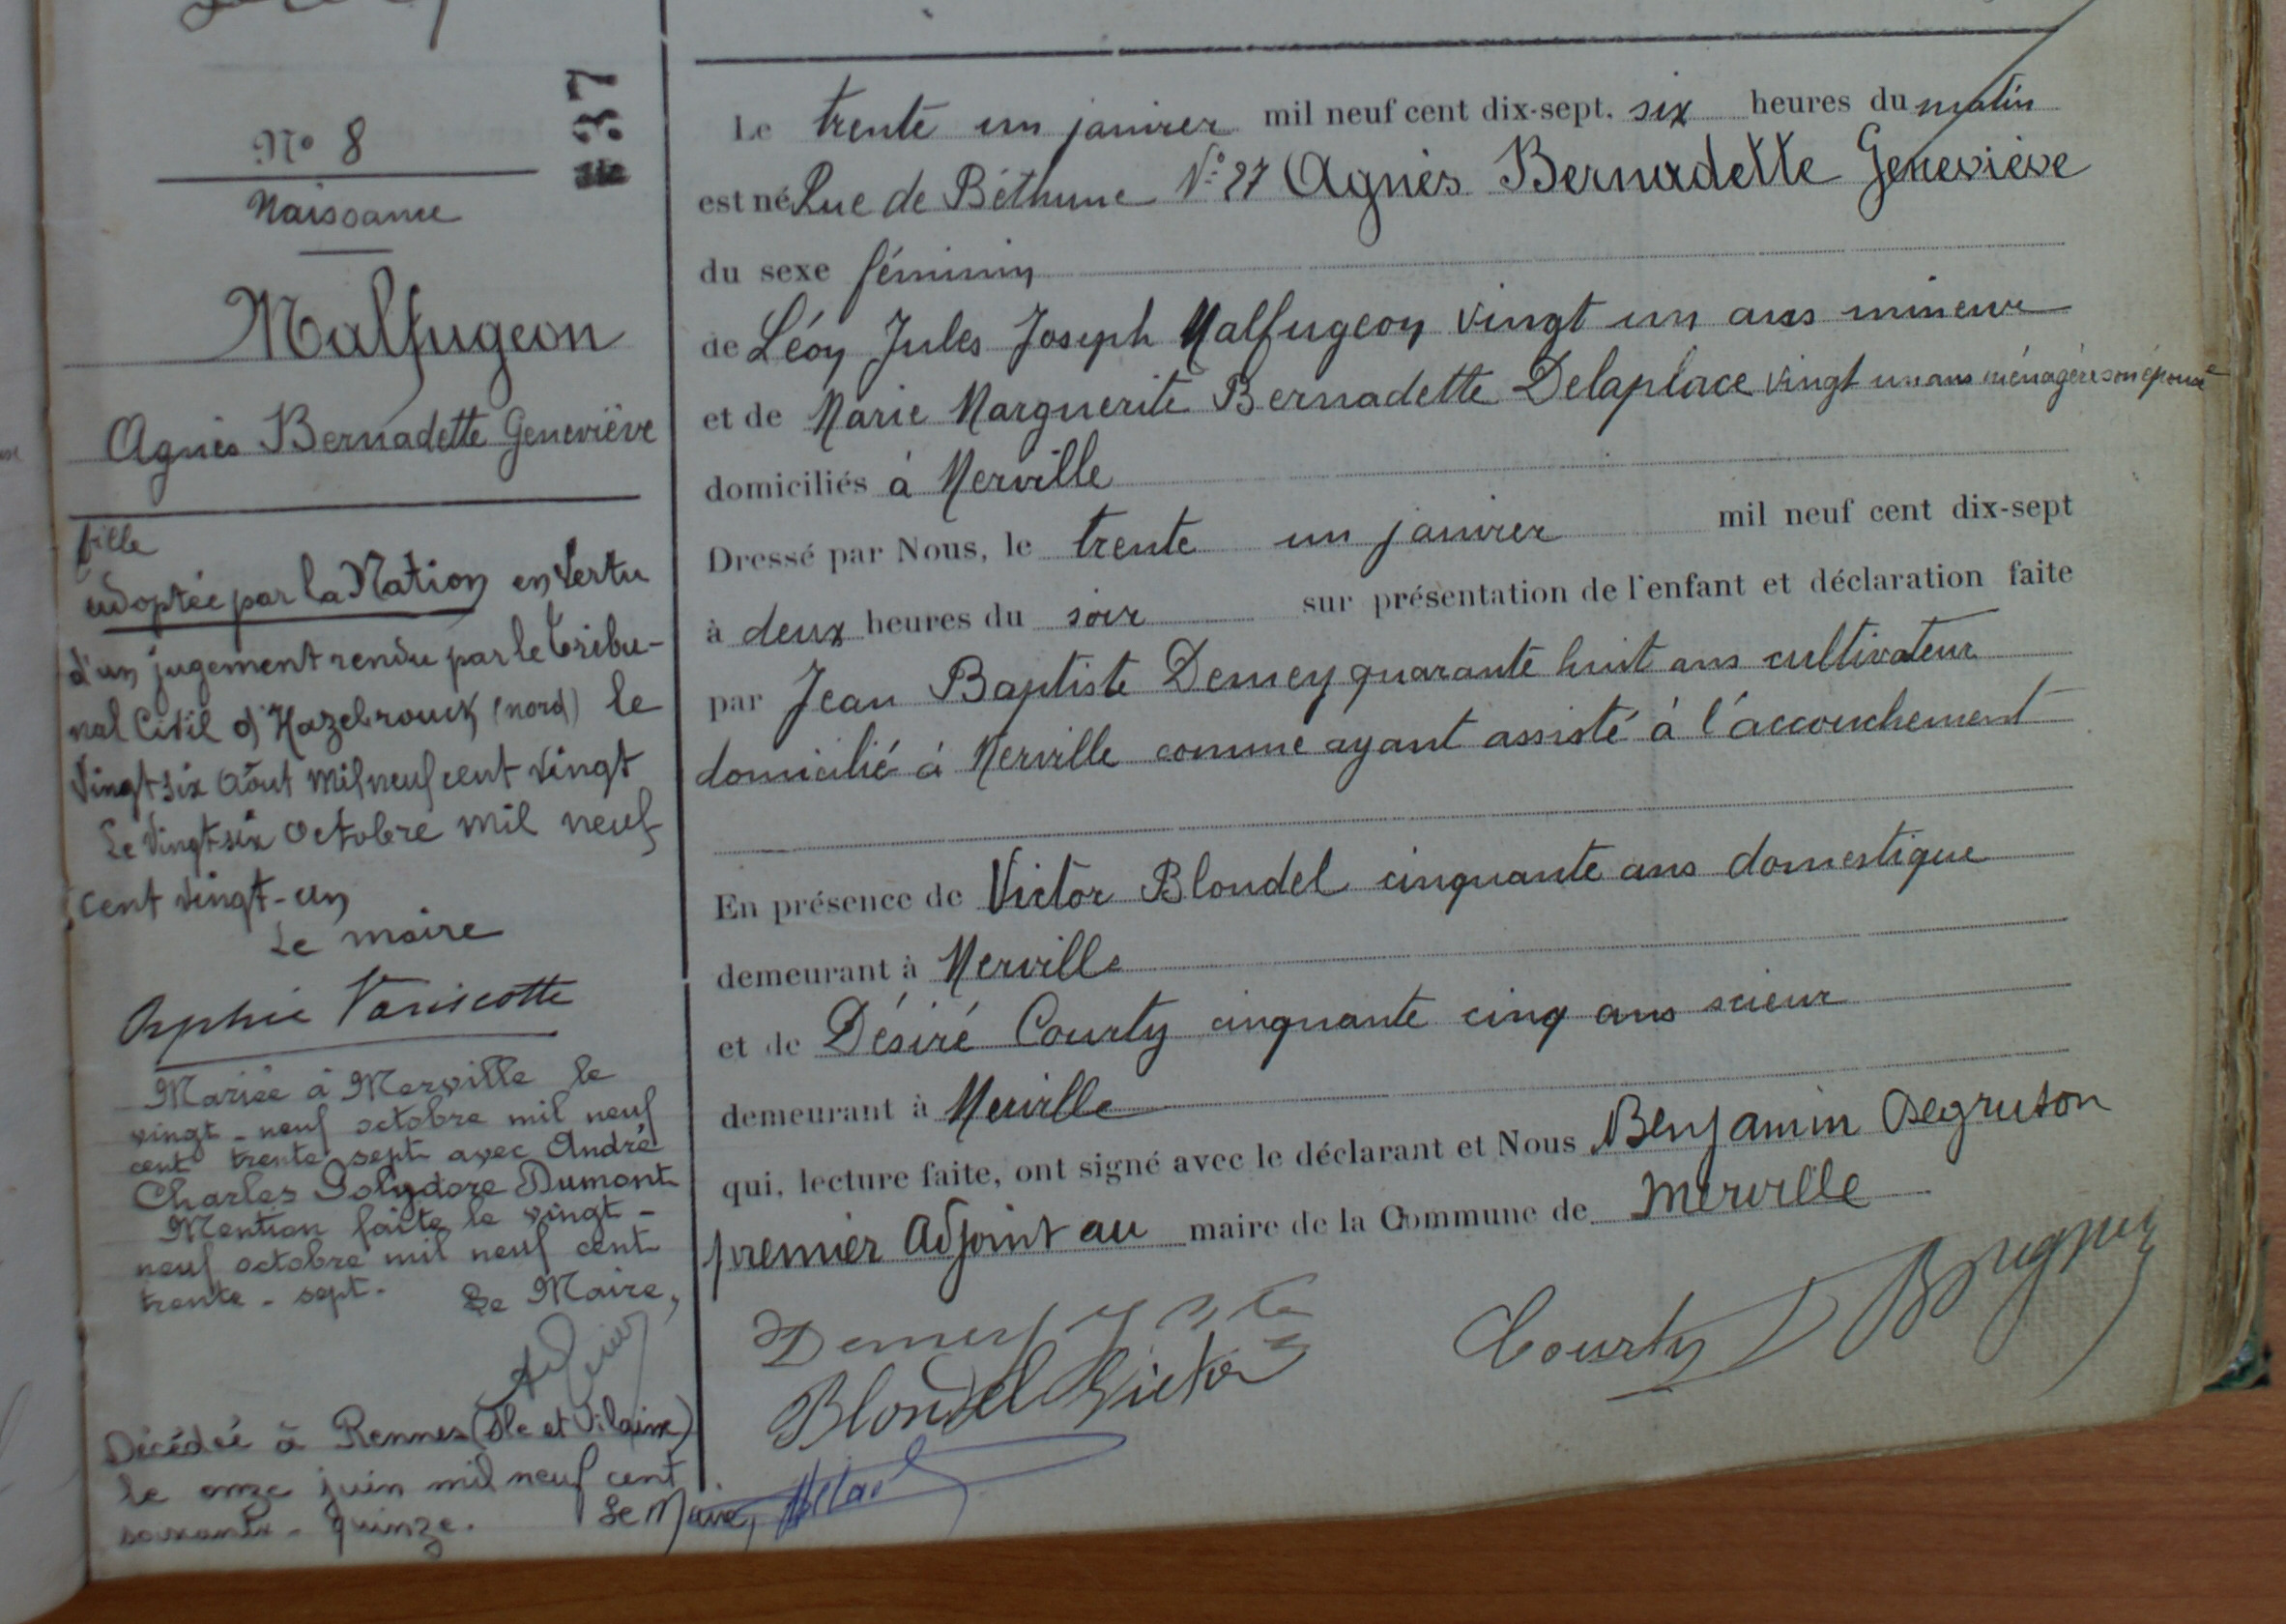 N° 8
Naissance
37
Malfugeon
Agnès Bernadette Geneviève
fille
adoptée par la Nation en Vertu
d'un jugement rendu par le Tribu-
nal Civil d'Hazebrouck (nord) le
Vingt six Août mil neuf cent Vingt
Le Vingt-six Octobre mil neuf
cent Vingt-un
Le maire
Orphie Vaniscotte
Mariée à Merville le
vingt-neuf octobre mil neuf
cent trente-sept avec André
Charles Polydore Dumont
Mention faite le vingt-
neuf octobre mil neuf cent
trente-sept.
Le Maire,
Décédée à Rennes (Ile et Vilaine)
le onze juin mil neuf cent
soixante-quinze.
Le Maire,
Le trente un janvier mil neuf cent dix-sept, six heures du matin
est né Rue de Béthune N° 27 Agnès Bernadette Geneviève
du sexe féminin
de Léon Jules Joseph Malfugeon vingt un ans mineur
et de Marie Marguerite Bernadette Delaplace vingt un ans ménagère son épouse
domiciliés à Merville
Dressé par Nous, le trente un janvier mil neuf cent dix-sept
à deux heures du soir sur présentation de l'enfant et déclaration faite
par Jean Baptiste Demey quarante huit ans cultivateur
domicilié à Merville comme ayant assisté à l'accouchement
En présence de Victor Blondel cinquante ans domestique
demeurant à Merville
et de Désiré Courty cinquante cinq ans scieur
demeurant à Merville
qui, lecture faite, ont signé avec le déclarant et Nous Benjamin Degruson
premier Adjoint au maire de la Commune de Merville
Demey
Courty D
Blondel Victor